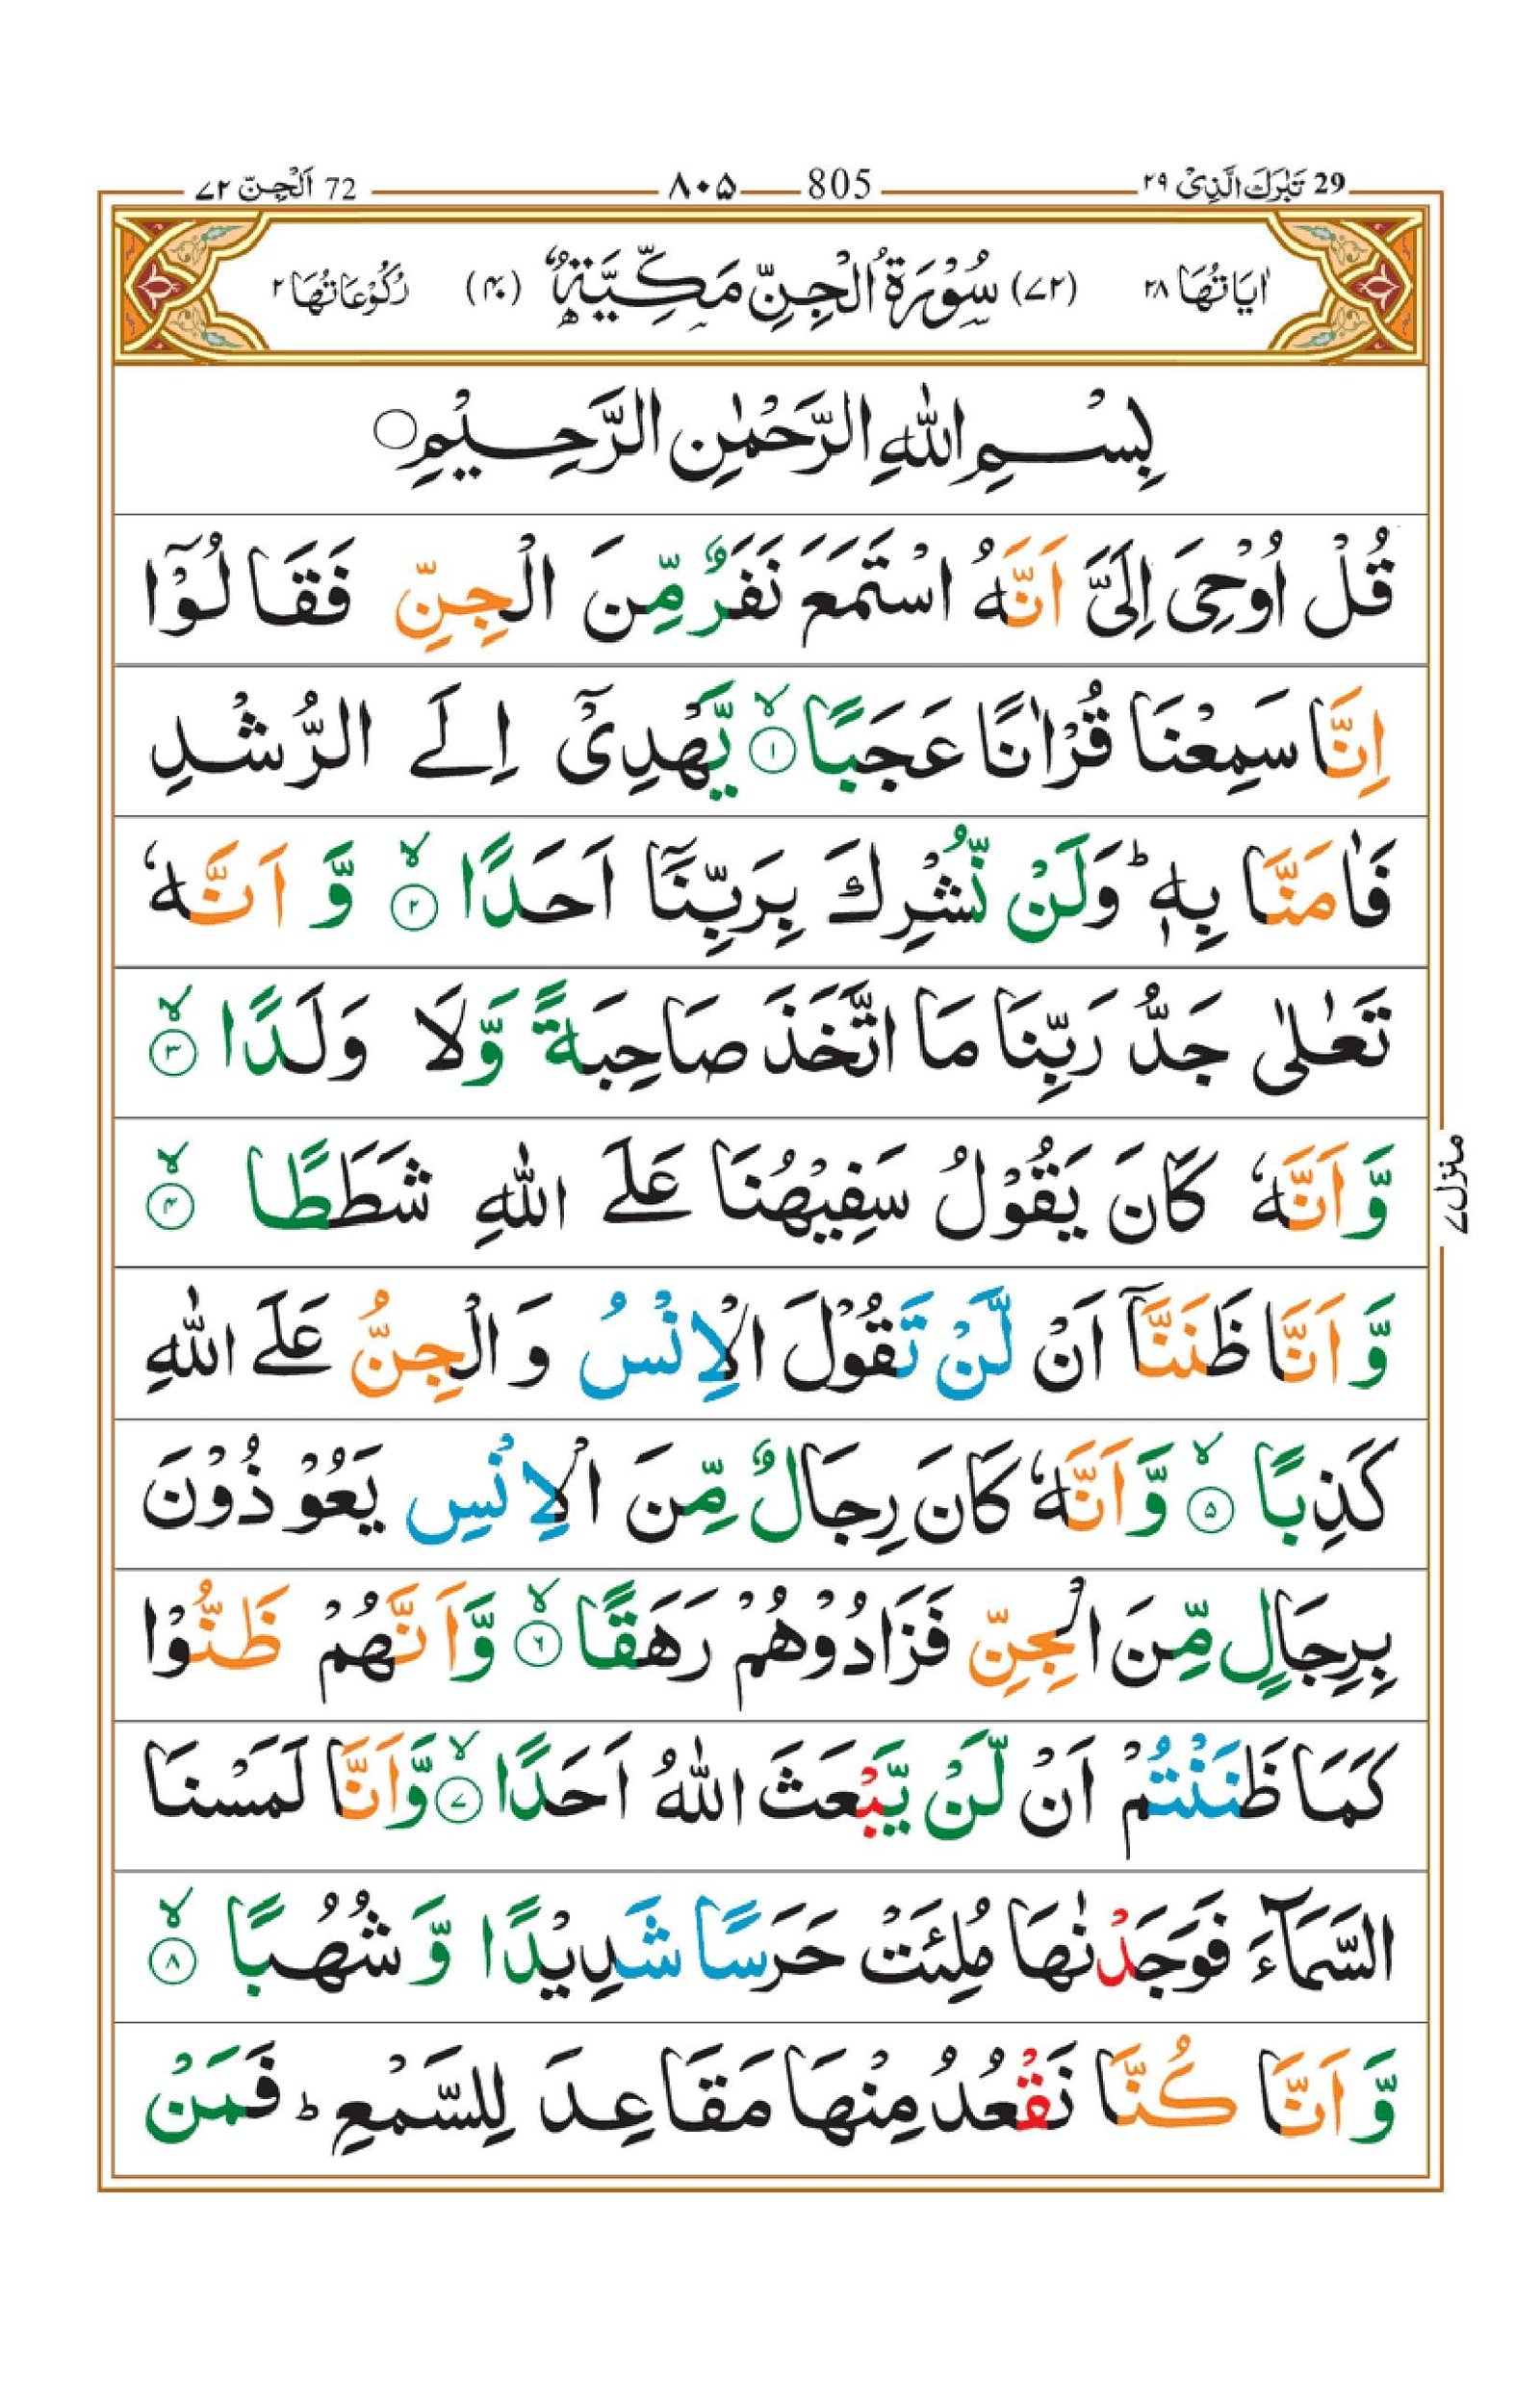 29 تَبٰرَكَ الَّذِیْ ۲۹ 805 ۸۰۵ 72 اَلْجِنّ ۷۲
اٰیَاتُهَا ۲۸ (۷۲) سُوْرَةُ الْجِنِّ مَكِّیَّةٌ (۴۰) رُكُوْعَاتُهَا ۲
بِسْمِ اللهِ الرَّحْمٰنِ الرَّحِیْمِ ۝
قُلْ اُوْحِیَ اِلَیَّ اَنَّهُ اسْتَمَعَ نَفَرٌ مِّنَ الْجِنِّ فَقَالُوْۤا
اِنَّا سَمِعْنَا قُرْاٰنًا عَجَبًا ۙ۝۱ یَّهْدِیْۤ اِلَی الرُّشْدِ
فَاٰمَنَّا بِهٖ ؕ وَلَنْ نُّشْرِكَ بِرَبِّنَاۤ اَحَدًا ۙ۝۲ وَّ اَنَّهٗ
تَعٰلٰی جَدُّ رَبِّنَا مَا اتَّخَذَ صَاحِبَةً وَّلَا وَلَدًا ۙ۝۳
وَّاَنَّهٗ كَانَ یَقُوْلُ سَفِیْهُنَا عَلَی اللهِ شَطَطًا ۙ۝۴
وَّ اَنَّا ظَنَنَّاۤ اَنْ لَّنْ تَقُوْلَ الْاِنْسُ وَ الْجِنُّ عَلَی اللهِ
كَذِبًا ۙ۝۵ وَّاَنَّهٗ كَانَ رِجَالٌ مِّنَ الْاِنْسِ یَعُوْذُوْنَ
بِرِجَالٍ مِّنَ الْجِنِّ فَزَادُوْهُمْ رَهَقًا ۙ۝۶ وَّاَنَّهُمْ ظَنُّوْا
كَمَا ظَنَنْتُمْ اَنْ لَّنْ یَّبْعَثَ اللهُ اَحَدًا ۙ۝۷ وَّاَنَّا لَمَسْنَا
السَّمَآءَ فَوَجَدْنٰهَا مُلِئَتْ حَرَسًا شَدِیْدًا وَّ شُهُبًا ۙ۝۸
وَّ اَنَّا كُنَّا نَقْعُدُ مِنْهَا مَقَاعِدَ لِلسَّمْعِ ؕ فَمَنْ
منزل۷